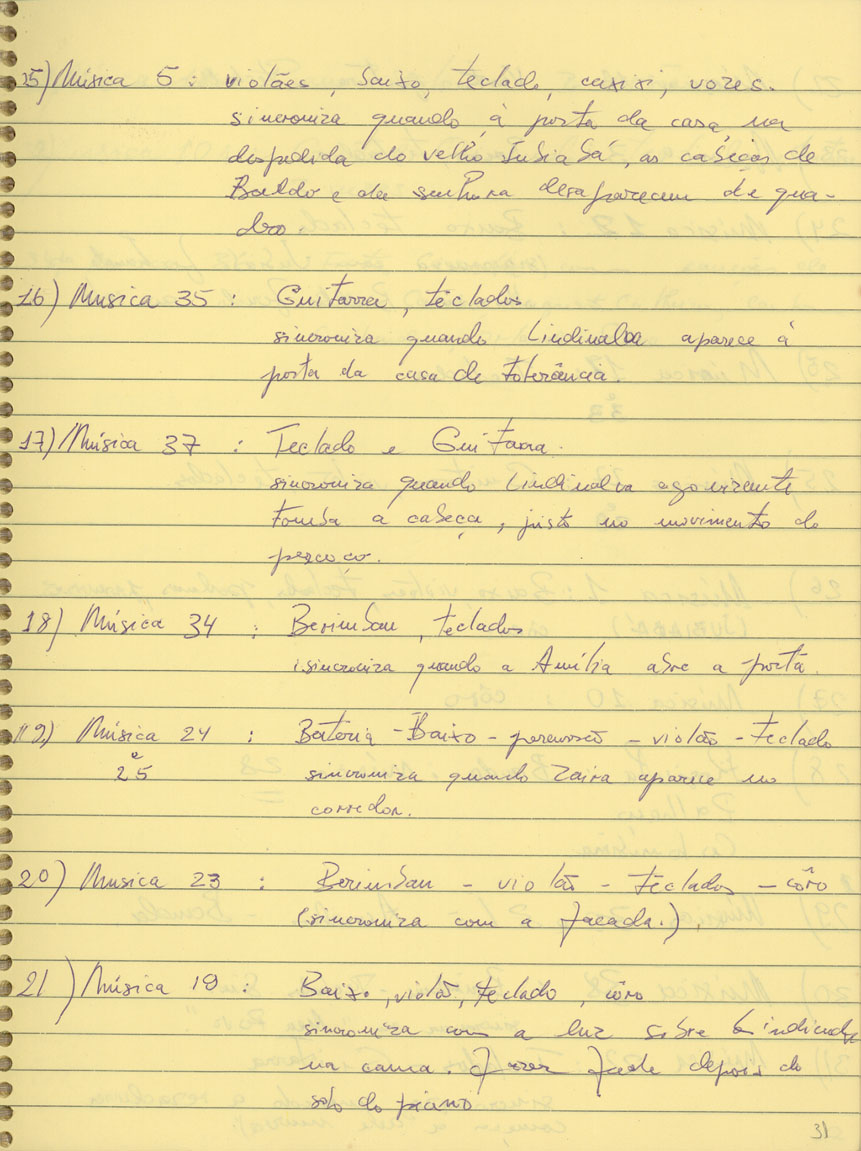 15) Música 5 : violões, baixo, teclado, caxixi, vozes.
sincroniza quando à porta da casa, na
despedida do velho Jubiabá, as cabeças de
Baldo e da senhora desaparecem de qua-
dro.
16) Musica 35 : Guitarra, teclados
sincroniza quando Lindinalva aparece à
porta da casa de tolerância
17) Música 37 : Teclado e Guitarra.
sincroniza quando Lindinalva agonizante
tomba a cabeça, justo no movimento do
pescoço.
18) Música 34 : Berimbau, teclados
sincroniza quando a Amélia abre a porta.
19) Música 24 : Bateria - Baixo - percussão - violão - Teclado
e 25 sincroniza quando Zaira aparece no
corredor.
20) Musica 23 : Berimbau - violão - Teclados - côro
(sincroniza com a facada.)
21) Música 19 : Baixo, violão, teclado, côro
sincroniza com a luz sobre Lindinalva
na cama. fazer fade depois do
solo do piano
31